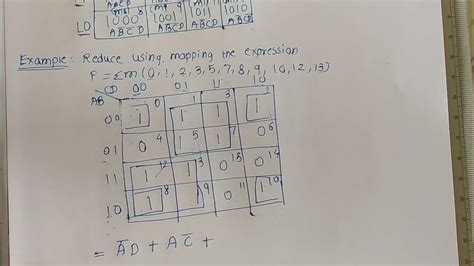 1000 1001 1011 1010
ABCD ABCD ABCD ABCD
Example: Reduce using mapping the expression
F = Σm (0, 1, 2, 3, 5, 7, 8, 9, 10, 12, 13)
CD 00 01 11 10
AB
00 1 0 1 1 1 3 1 2
01 0 4 1 5 1 7 0 6
11 1 12 1 13 0 15 0 14
10 1 8 1 9 0 11 1 10
= A̅D + AC̅ +